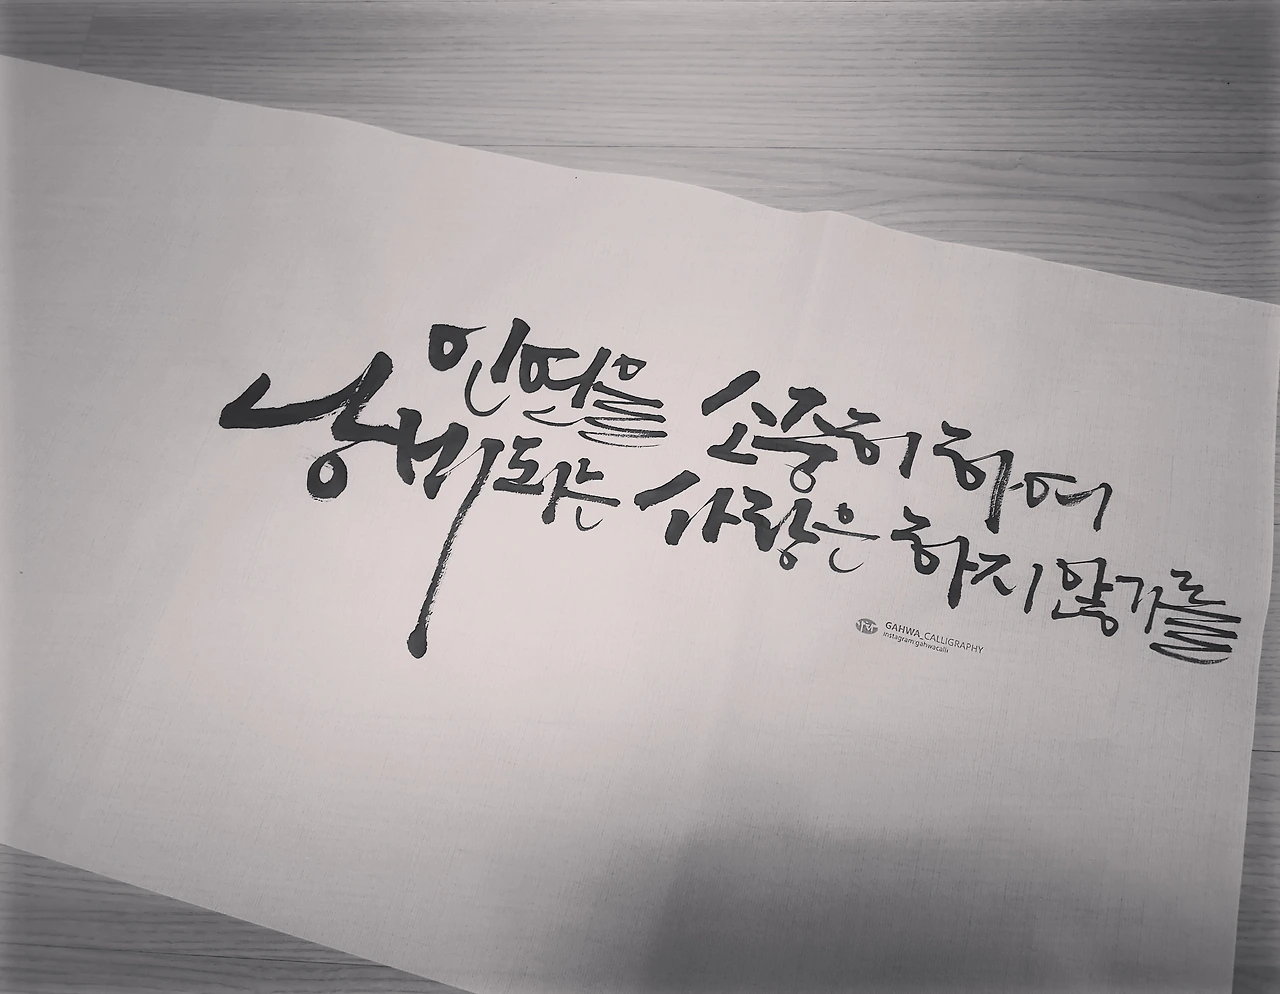 인연을 소중히 하여
낭비되는 사랑은 하지 않기를
GAHWA_CALLIGRAPHY
instagram:gahwacalli